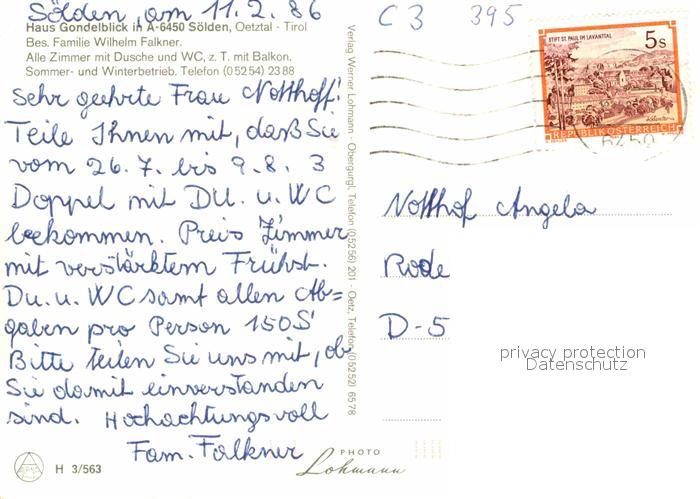 Sölden, am 11.2.86
Haus Gondelblick in A-6450 Sölden, Oetztal - Tirol
Bes. Familie Wilhelm Falkner.
Alle Zimmer mit Dusche und WC, z. T. mit Balkon.
Sommer- und Winterbetrieb. Telefon (0 52 54) 23 88
Sehr geehrte Frau Notthoff!
Teile Ihnen mit, daß Sie
vom 26.7. bis 9.8. 3
Doppel mit DU. u. WC
bekommen. Preis Zimmer
mit verstärktem Frühst.
Du. u. WC samt allen Ab=
gaben pro Person 150S
Bitte teilen Sie uns mit, ob
Sie damit einverstanden
sind. Hochachtungsvoll
Fam. Falkner
H 3/563
Verlag Werner Lohmann - Obergurgl, Telefon (0 52 56) 201 - Oetz, Telefon (0 52 52) 65 78
PHOTO
Lohmann
C 3 395
STIFT ST. PAUL IM LAVANTTAL
5 S
REPUBLIK ÖSTERREICH
6450
Notthof Angela
Rode
D-5
privacy protection
Datenschutz